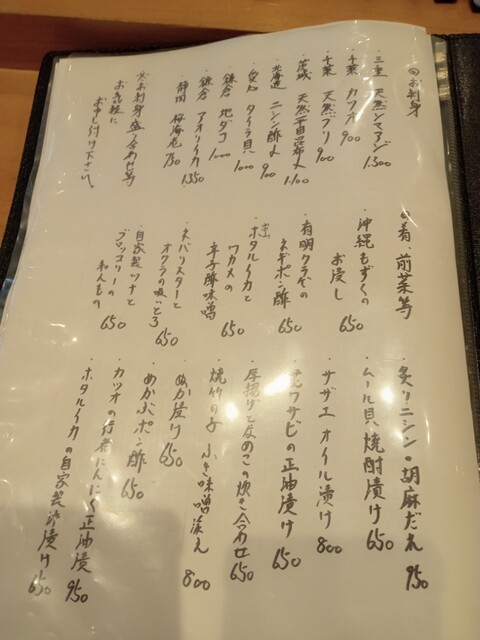 ◎お刺身
・三重 天然シマアジ 1300
・千葉 カツオ 900
・千葉 天然ブリ 900
・茨城 天然平目昆布〆 1100
・北海道 ニシン酢〆 900
・愛知 タイラ貝 1000
・鎌倉 地ダコ 1000
・鎌倉 アオリイカ 1350
・静岡 桜海老 750
※お刺身盛り合わせ等
お気軽に
お申し付け下さい。
◎肴、前菜等
・沖縄もずくの
お浸し 650
・有明クラゲの
ネギポン酢 650
・ホタルイカと
ワカメの
辛子酢味噌 650
・ネバリスターと
オクラの吸いとろ 650
・自家製ツナと
ブロッコリーの
和えもの 650
・炙りニシン・胡麻だれ 950
・ムール貝焼酎漬け 650
・サザエオイル漬け 800
・花ワサビの正油漬け 650
・厚揚げとなめこの炊き合わせ 650
・焼竹の子 ふき味噌添え 800
・ぬか漬け 650
・めかぶポン酢 650
・カツオの行者にんにく正油漬 950
・ホタルイカの自家製沖漬け 650